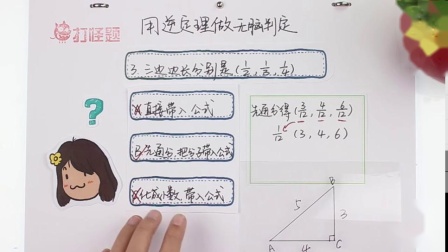 打怪题
用逆定理做无脑判定
3.三边边长分别是(1/2, 1/3, 1/4)
A直接带入公式
B先通分,把分子带入公式
C化成小数,带入公式
?
先通分得(3/12, 4/12, 6/12)
1/12 (3, 4, 6)
B
5
3
A
4
C